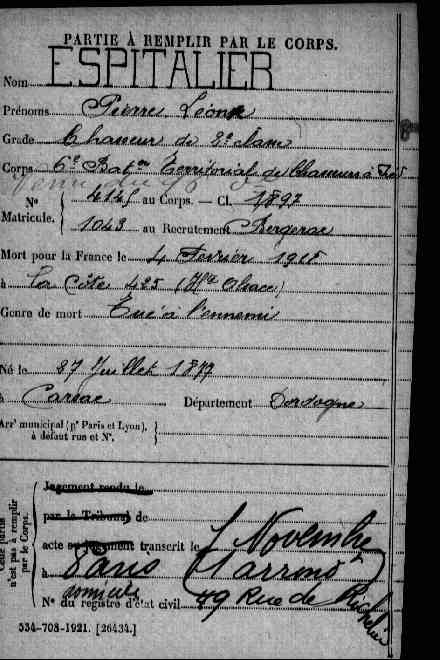 PARTIE À REMPLIR PAR LE CORPS.
Nom ESPITALIER
Prénoms Pierre Léon
Grade Chasseur de 2e classe
Corps 6e Baton Territorial de Chasseurs à Pied
N° 4145 au Corps. — Cl. 1897
Matricule. 1043 au Recrutement Bergerac
Mort pour la France le 4 Février 1915
à La Côte 425 (Hte Alsace)
Genre de mort Tué à l'ennemi
Né le 27 Juillet 1877
à Carsac Département Dordogne
Arrt municipal (pr Paris et Lyon), à défaut rue et N°.
Cette partie n'est pas à remplir par le Corps.
Jugement rendu le
par le Tribunal de
acte ou jugement transcrit le 7 Novembre
à Paris
N° du registre d'état civil 79 Rue de Richelieu
domicile
534-708-1921. [26434.]